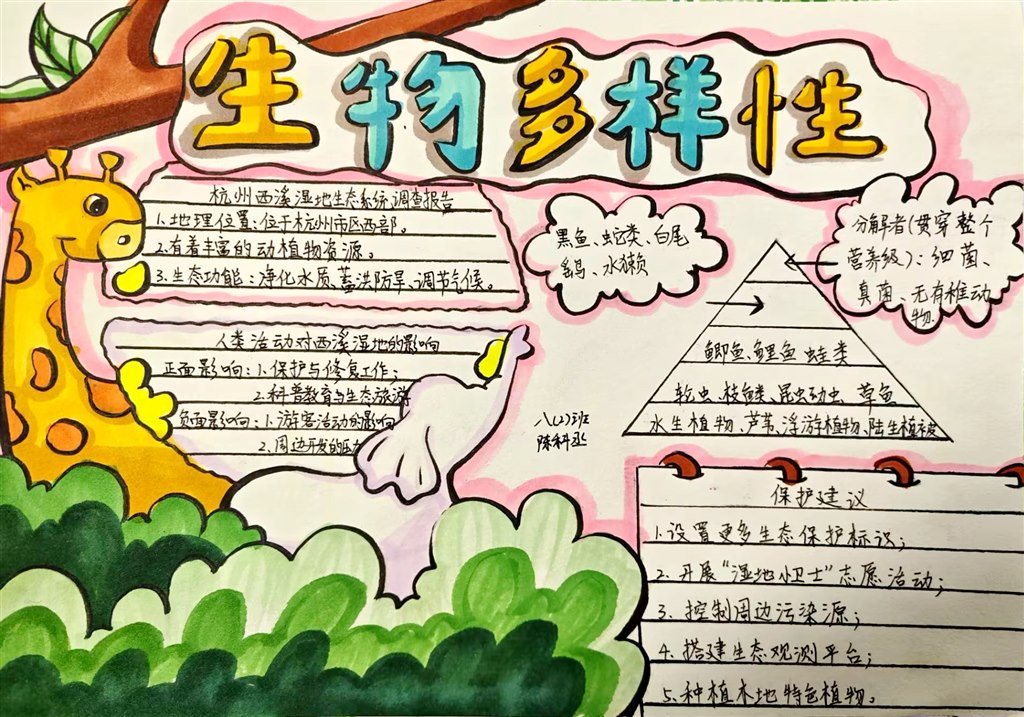 生物多样性
杭州西溪湿地生态系统调查报告
1.地理位置:位于杭州市区西部。
2.有着丰富的动植物资源。
3.生态功能:净化水质、蓄洪防旱、调节气候。
人类活动对西溪湿地的影响
正面影响:1.保护与修复工作;
2.科普教育与生态旅游
负面影响:1.游客活动的影响
2.周边开发的压力
黑鱼、蛇类、白尾
鹞、水獭
分解者(贯穿整个
营养级):细菌、
真菌、无脊椎动
物.
鲫鱼、鲤鱼 蛙类
轮虫、枝鳞、昆虫幼虫 草鱼
水生植物、芦苇、浮游植物、陆生植被
八(2)班
陈科丞
保护建议
1.设置更多生态保护标识;
2.开展“湿地小卫士”志愿活动;
3.控制周边污染源;
4.搭建生态观测平台;
5.种植本地特色植物。